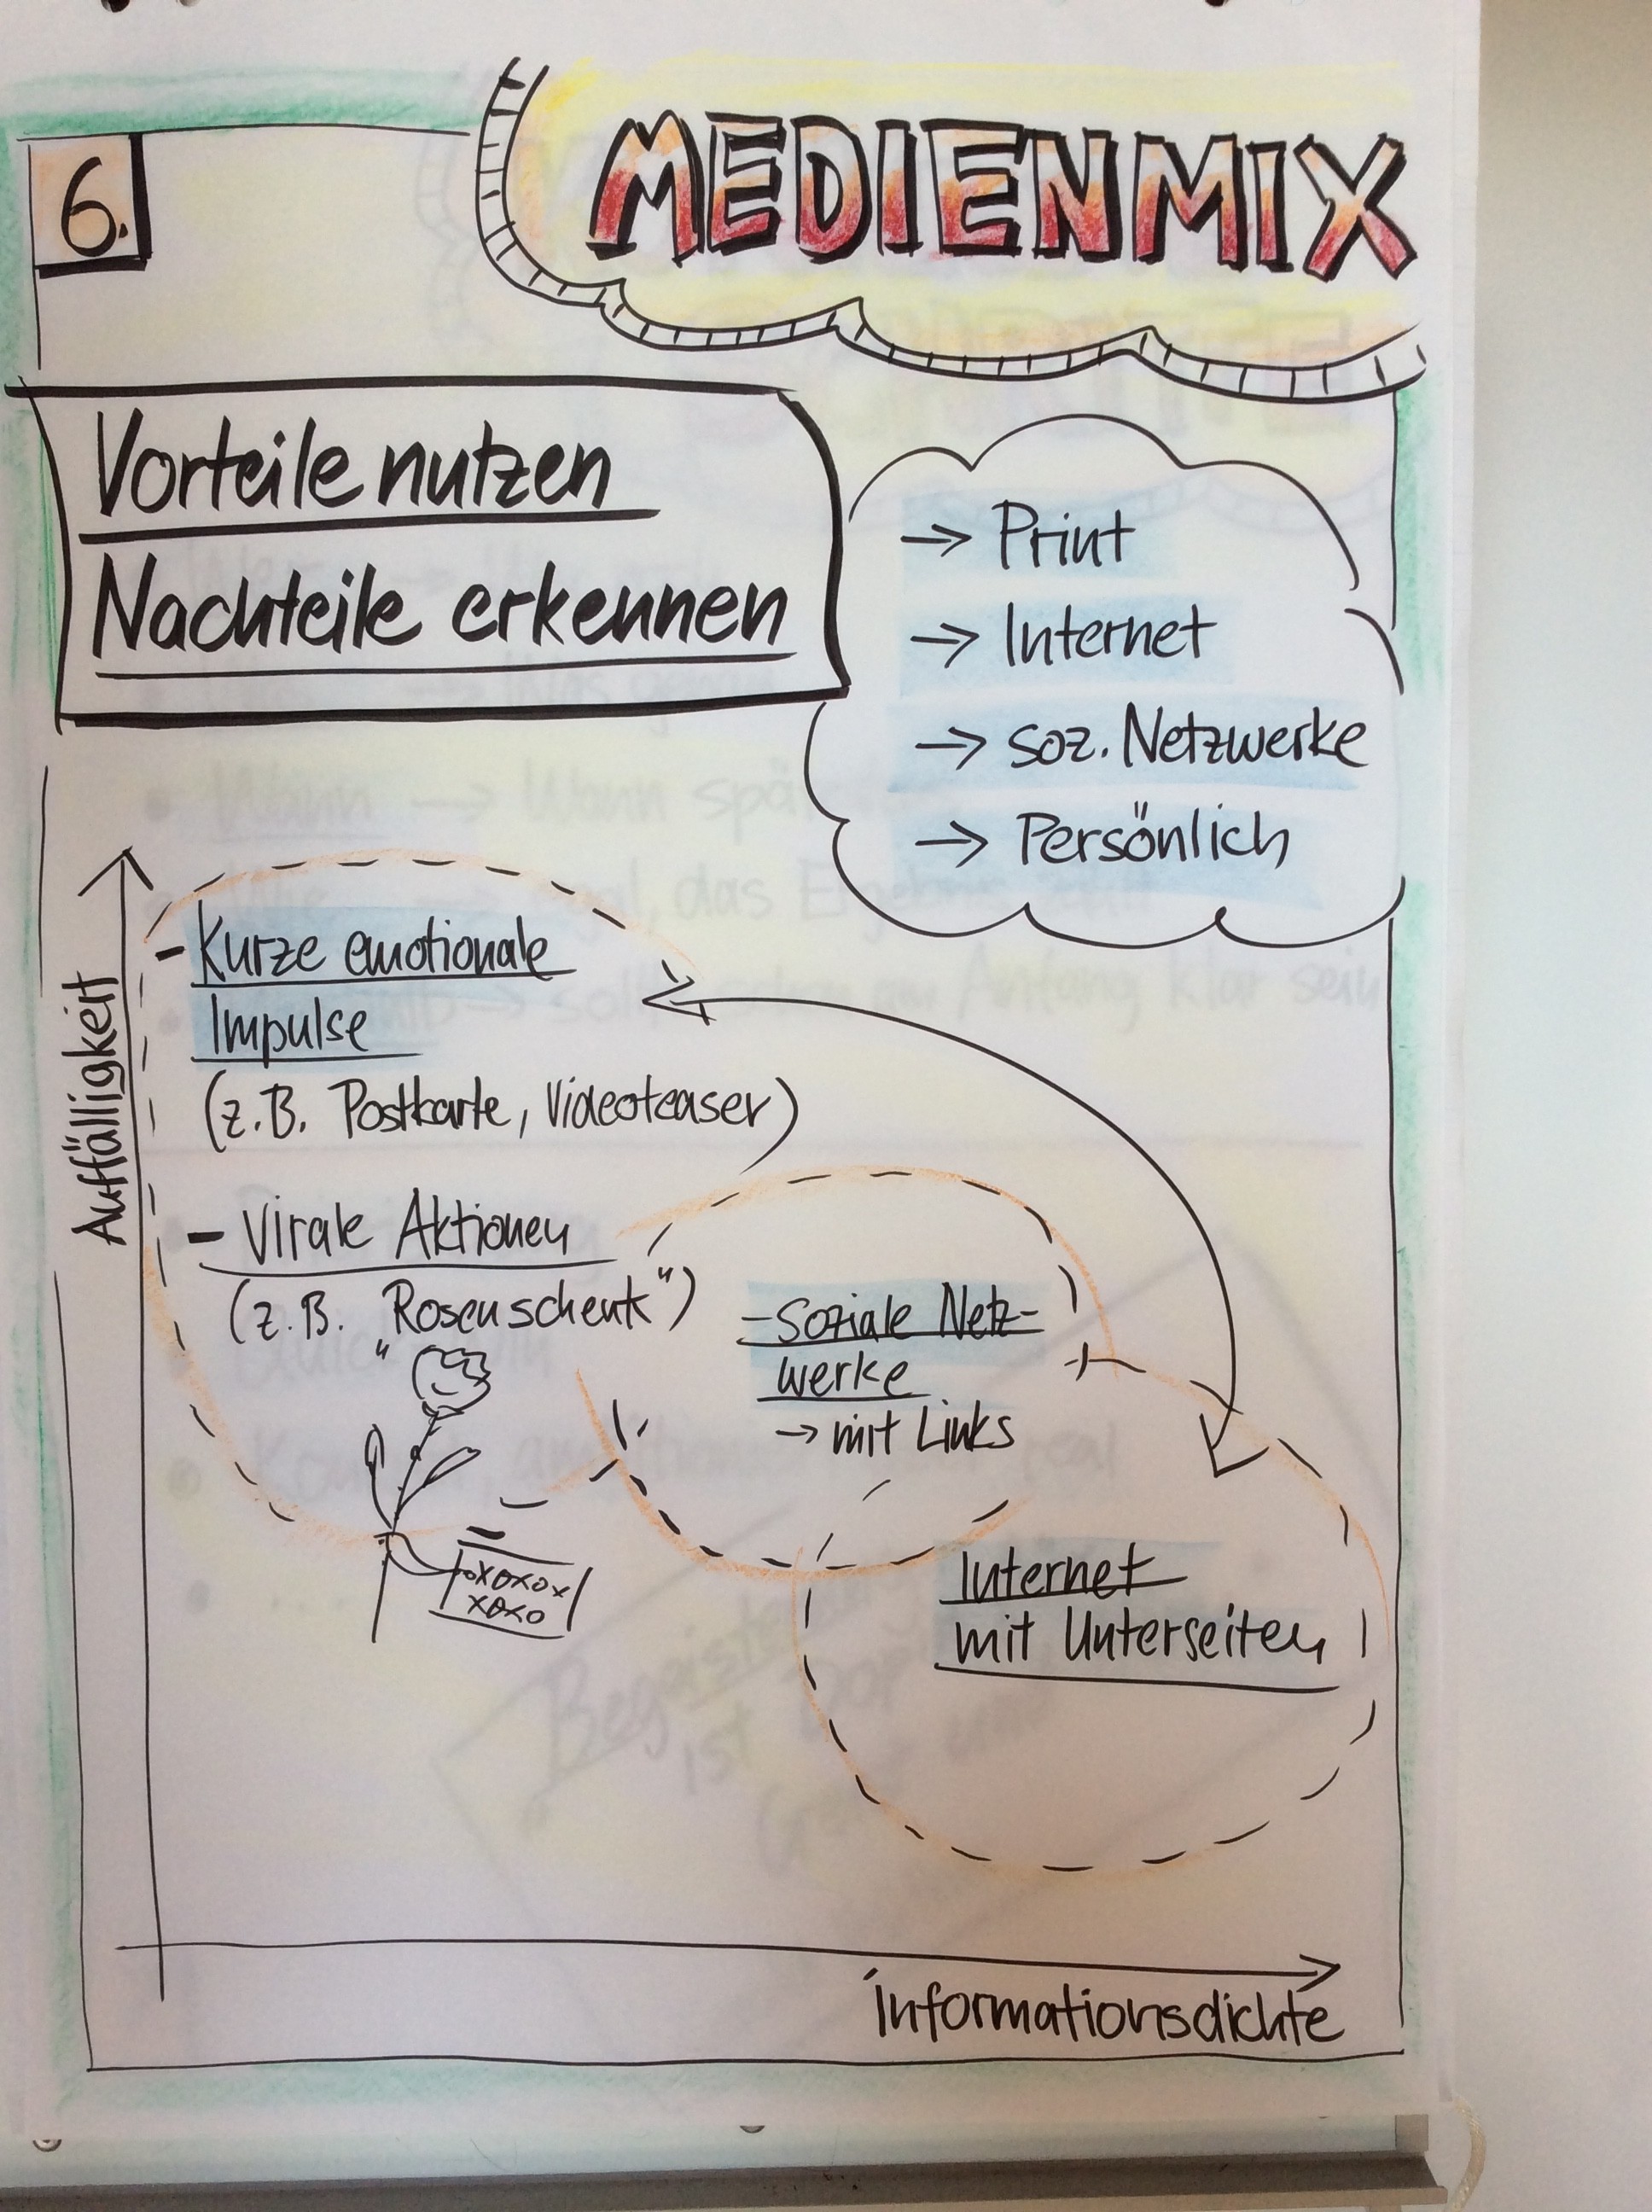 6.
MEDIENMIX
Vorteile nutzen
Nachteile erkennen
→ Print
→ Internet
→ soz. Netzwerke
→ Persönlich
Auffälligkeit
- Kurze emotionale
Impulse
(z.B. Postkarte, Videoteaser)
- Virale Aktionen
(z.B. „Rosenschenk“)
- Soziale Netz-
werke
→ mit Links
xoxoxox
xoxo
Internet
mit Unterseiten
Informationsdichte